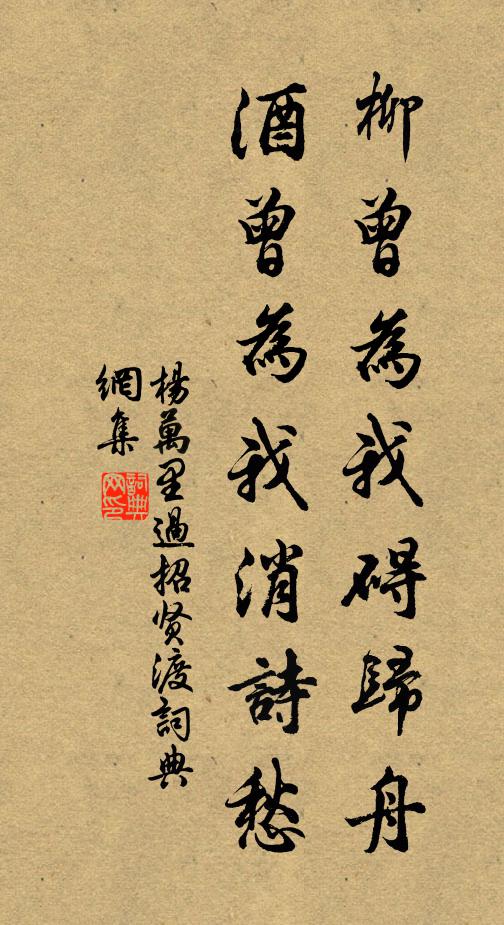 柳曾為我碍歸舟
酒曾為我消詩愁
楊萬里過招贤渡詞典
網集
詞典
网印